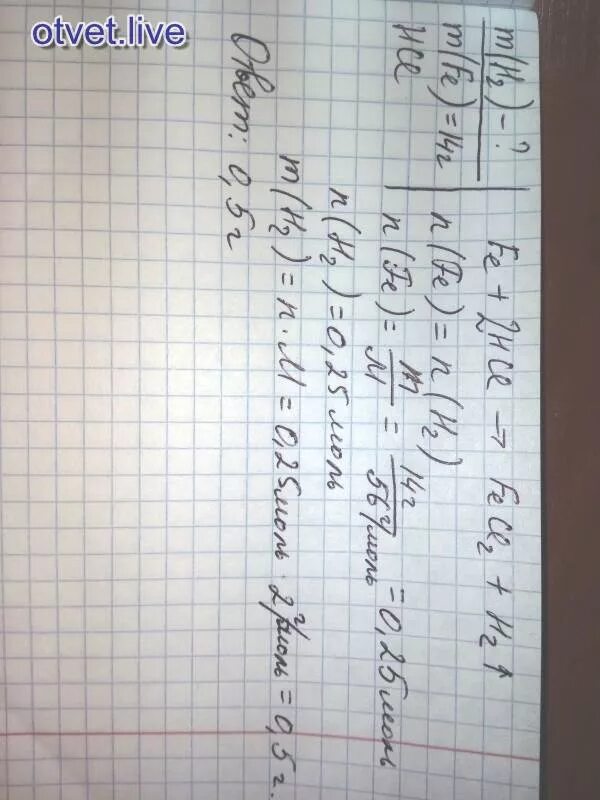 otvet.live
m(H₂) - ?
m(Fe) = 14г
HCl
Fe + 2HCl → FeCl₂ + H₂↑
n(Fe) = n(H₂)
n(Fe) = m/M = 14г/56г/моль = 0,25моль
n(H₂) = 0,25моль
m(H₂) = n · M = 0,25моль · 2г/моль = 0,5г.
Ответ: 0,5г